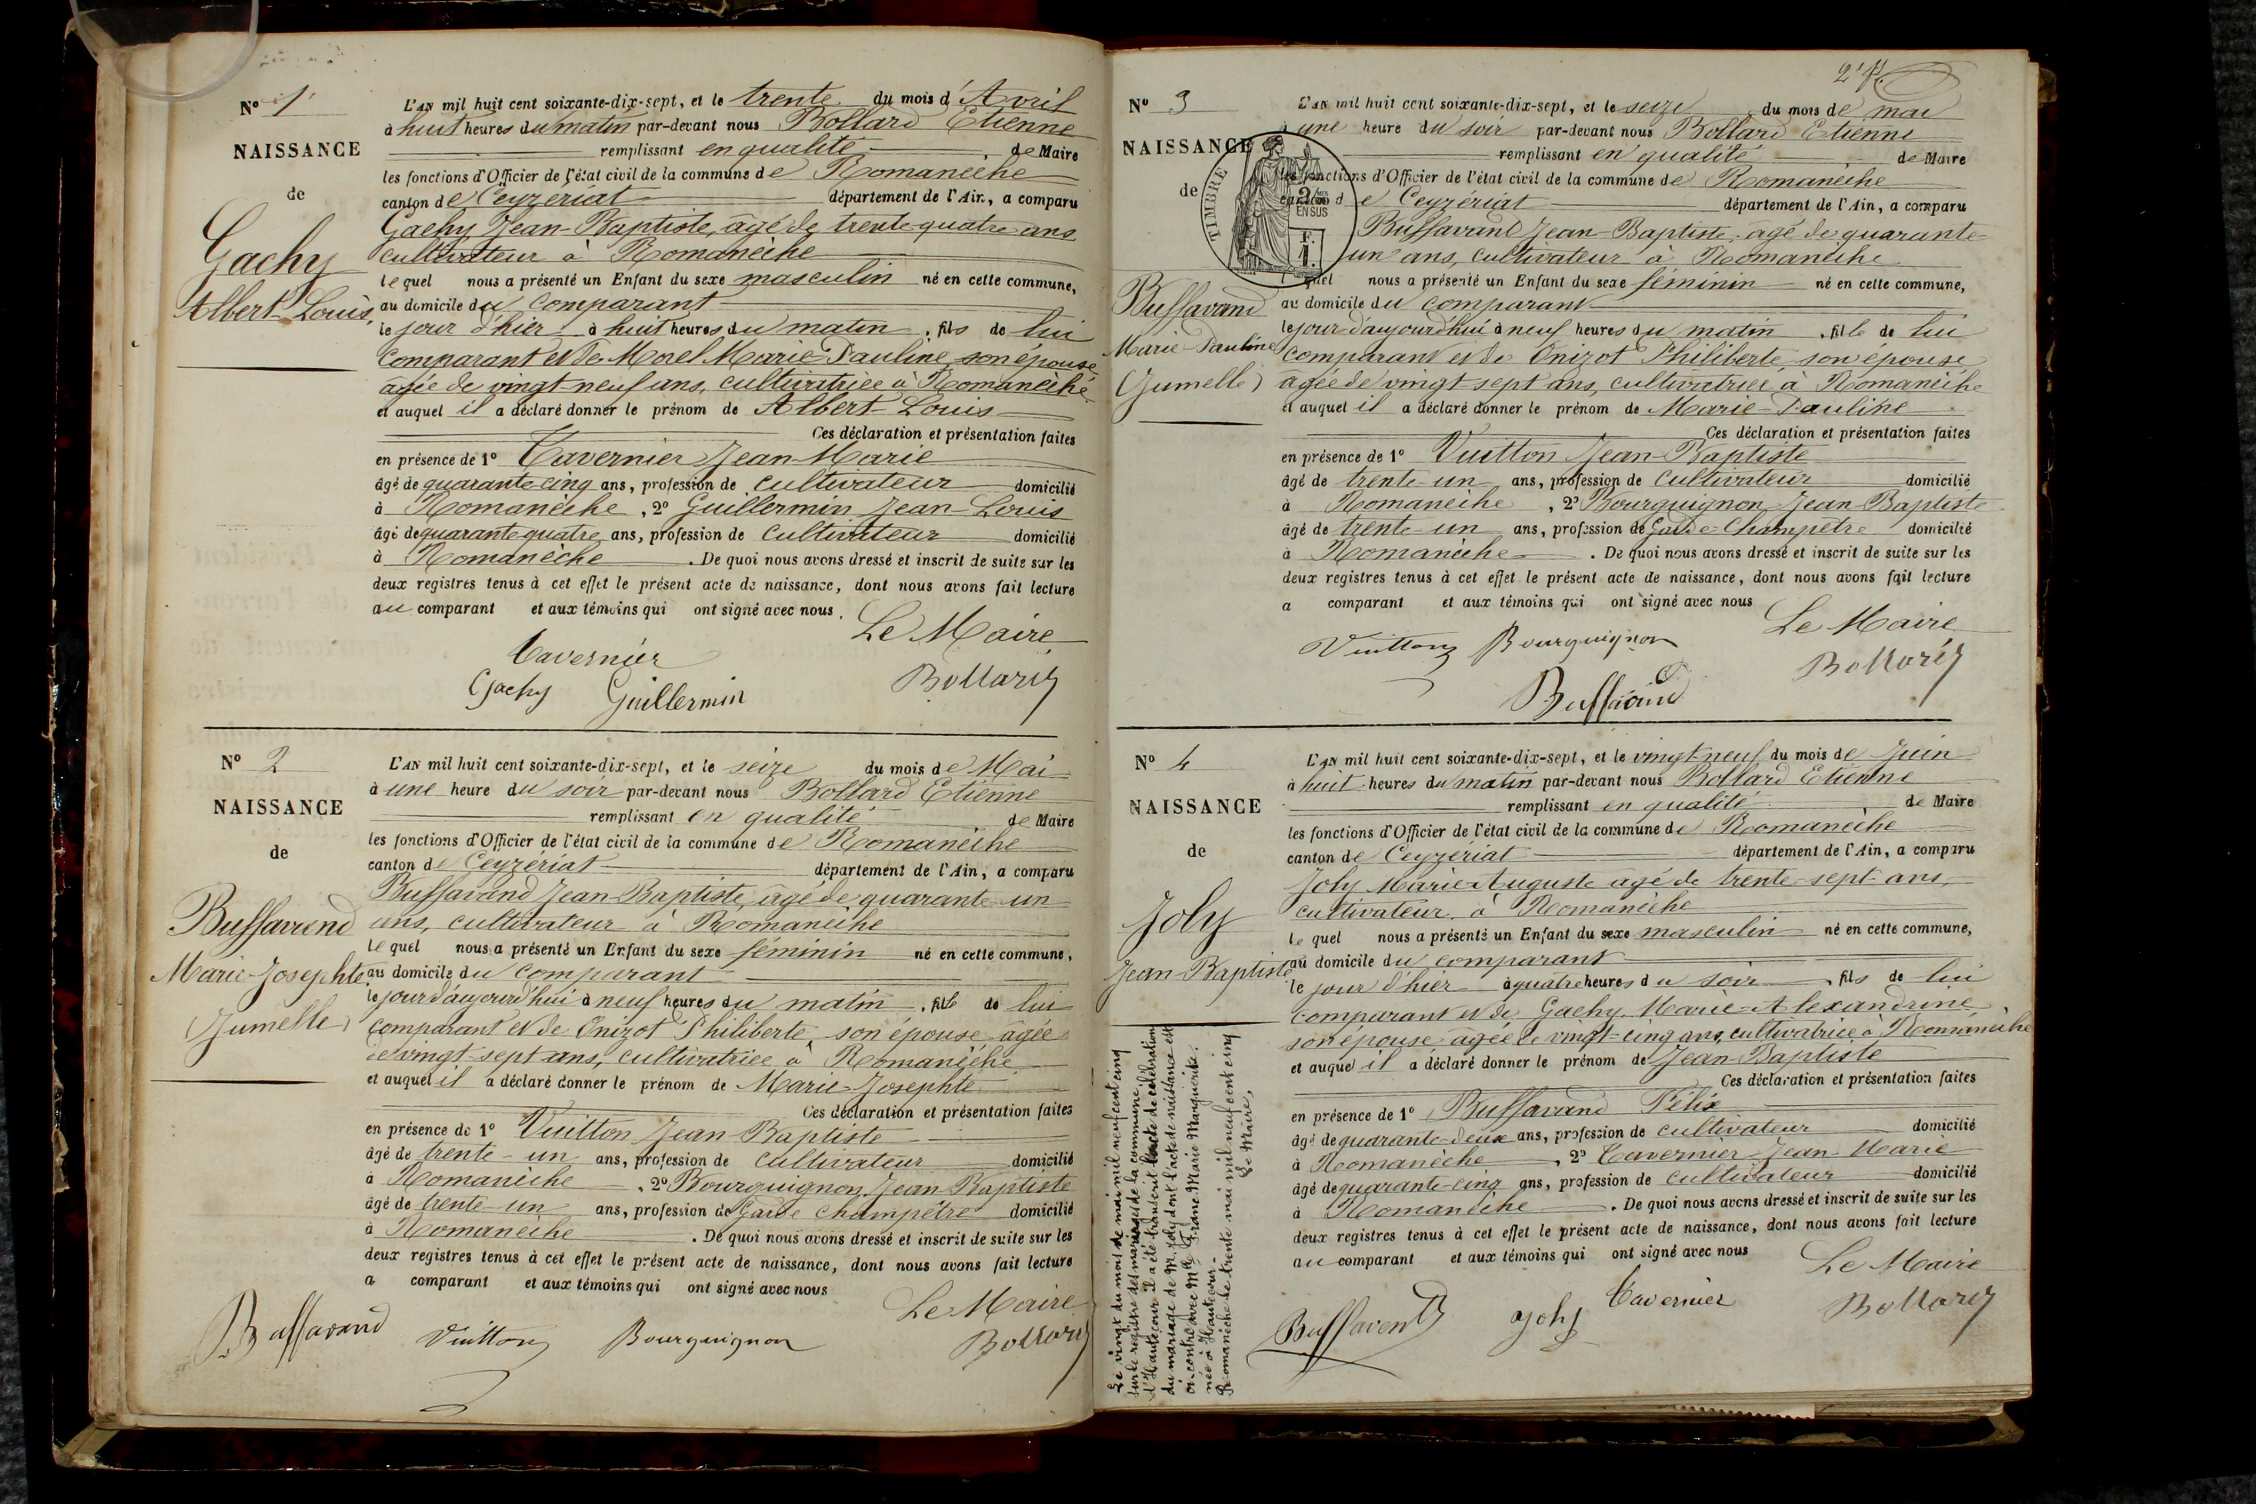 N° 1
NAISSANCE
de
Gachy
Albert-Louis
L'AN mil huit cent soixante-dix-sept, et le trente du mois d'Avril
à huit heures du matin par-devant nous Bollard Etienne
remplissant en qualité de Maire
les fonctions d'Officier de l'état civil de la commune de Romanèche
canton de Ceyzériat département de l'Ain, a comparu
Gachy Jean-Baptiste, âgé de trente-quatre ans
cultivateur à Romanèche
le quel nous a présenté un Enfant du sexe masculin né en cette commune,
au domicile du comparant
le jour d'hier à huit heures du matin, fils de lui
comparant et de Morel Marie-Pauline son épouse
agée de vingt-neuf ans, cultivatrice à Romanèche
et auquel il a déclaré donner le prénom de Albert-Louis
Ces déclaration et présentation faites
en présence de 1° Tavernier Jean-Marie
âgé de quarante-cinq ans, profession de cultivateur domicilié
à Romanèche, 2° Guillermin Jean-Louis
âgé de quarante quatre ans, profession de cultivateur domicilié
à Romanèche. De quoi nous avons dressé et inscrit de suite sur les
deux registres tenus à cet effet le présent acte de naissance, dont nous avons fait lecture
au comparant et aux témoins qui ont signé avec nous.
Le Maire
Tavernier
Bollard
Gachy Guillermin
N° 2
NAISSANCE
de
Buffavand
Marie-Josephte
(Jumelle)
L'AN mil huit cent soixante-dix-sept, et le seize du mois de Mai
à une heure du soir par-devant nous Bollard Etienne
remplissant en qualité de Maire
les fonctions d'Officier de l'état civil de la commune de Romanèche
canton de Ceyzériat département de l'Ain, a comparu
Buffavand Jean-Baptiste, âgé de quarante-un
ans, cultivateur à Romanèche
le quel nous a présenté un Enfant du sexe féminin né en cette commune,
au domicile du comparant
le jour d'aujourd'hui à neuf heures du matin, fille de lui
comparant et de Onizot Philiberte son épouse agée
de vingt-sept ans, cultivatrice à Romanèche
et auquel il a déclaré donner le prénom de Marie-Josephte
Ces déclaration et présentation faites
en présence de 1° Vuitton Jean-Baptiste
âgé de trente-un ans, profession de cultivateur domicilié
à Romanèche, 2° Bourguignon Jean-Baptiste
âgé de trente-un ans, profession de Garde champêtre domicilié
à Romanèche. De quoi nous avons dressé et inscrit de suite sur les
deux registres tenus à cet effet le présent acte de naissance, dont nous avons fait lecture
a comparant et aux témoins qui ont signé avec nous
Le Maire
Buffavand Vuitton Bourguignon Bollard
N° 3
NAISSANCE
de
TIMBRE
Buffavand
Marie-Pauline
(Jumelle)
L'AN mil huit cent soixante-dix-sept, et le seize du mois de mai
à une heure du soir par-devant nous Bollard Etienne
remplissant en qualité de Maire
les fonctions d'Officier de l'état civil de la commune de Romanèche
canton de Ceyzériat département de l'Ain, a comparu
Buffavand Jean-Baptiste, agé de quarante-
un ans, cultivateur à Romanèche
lequel nous a présenté un Enfant du sexe féminin né en cette commune,
au domicile du comparant
le jour d'aujourd'hui à neuf heures du matin, fille de lui
comparant et de Onizot Philiberte, son épouse
agée de vingt sept ans, cultivatrice à Romanèche
et auquel il a déclaré donner le prénom de Marie-Pauline
Ces déclaration et présentation faites
en présence de 1° Vuitton Jean-Baptiste
âgé de trente-un ans, profession de cultivateur domicilié
à Romanèche, 2° Bourguignon Jean-Baptiste
âgé de trente-un ans, profession de Garde-Champêtre domicilié
à Romanèche. De quoi nous avons dressé et inscrit de suite sur les
deux registres tenus à cet effet le présent acte de naissance, dont nous avons fait lecture
a comparant et aux témoins qui ont signé avec nous
Le Maire
Vuitton Bourguignon
Bollard
Buffavand
N° 4
NAISSANCE
de
Joly
Jean-Baptiste
L'AN mil huit cent soixante-dix-sept, et le vingt neuf du mois de Juin
à huit heures du matin par-devant nous Bollard Etienne
remplissant en qualité de Maire
les fonctions d'Officier de l'état civil de la commune de Romanèche
canton de Ceyzériat département de l'Ain, a comparu
Joly Marie-Auguste agé de trente-sept ans,
cultivateur à Romanèche
le quel nous a présenté un Enfant du sexe masculin né en cette commune,
au domicile du comparant
le jour d'hier à quatre heures du soir, fils de lui
comparant et de Gachy Marie-Alexandrine
son épouse agée de vingt-cinq ans, cultivatrice à Romanèche
et auquel il a déclaré donner le prénom de Jean-Baptiste
Ces déclaration et présentation faites
en présence de 1° Buffavand Félix
âgé de quarante-deux ans, profession de cultivateur domicilié
à Romanèche, 2° Tavernier Jean-Marie
âgé de quarante-cinq ans, profession de cultivateur domicilié
à Romanèche. De quoi nous avons dressé et inscrit de suite sur les
deux registres tenus à cet effet le présent acte de naissance, dont nous avons fait lecture
au comparant et aux témoins qui ont signé avec nous
Le Maire
Buffavand Joly Tavernier Bollard
Le vingt du mois de mai mil neuf cent cinq
sur le registre des mariages de la commune
d'Hautecour il a été transcrit l'acte de célébration
du mariage de M. Joly dont l'acte de naissance est
ci-contre avec Mlle Franc Marie Marguerite
née à Hautecour.
Romanèche le trente mai mil neuf cent cinq
Le Maire,